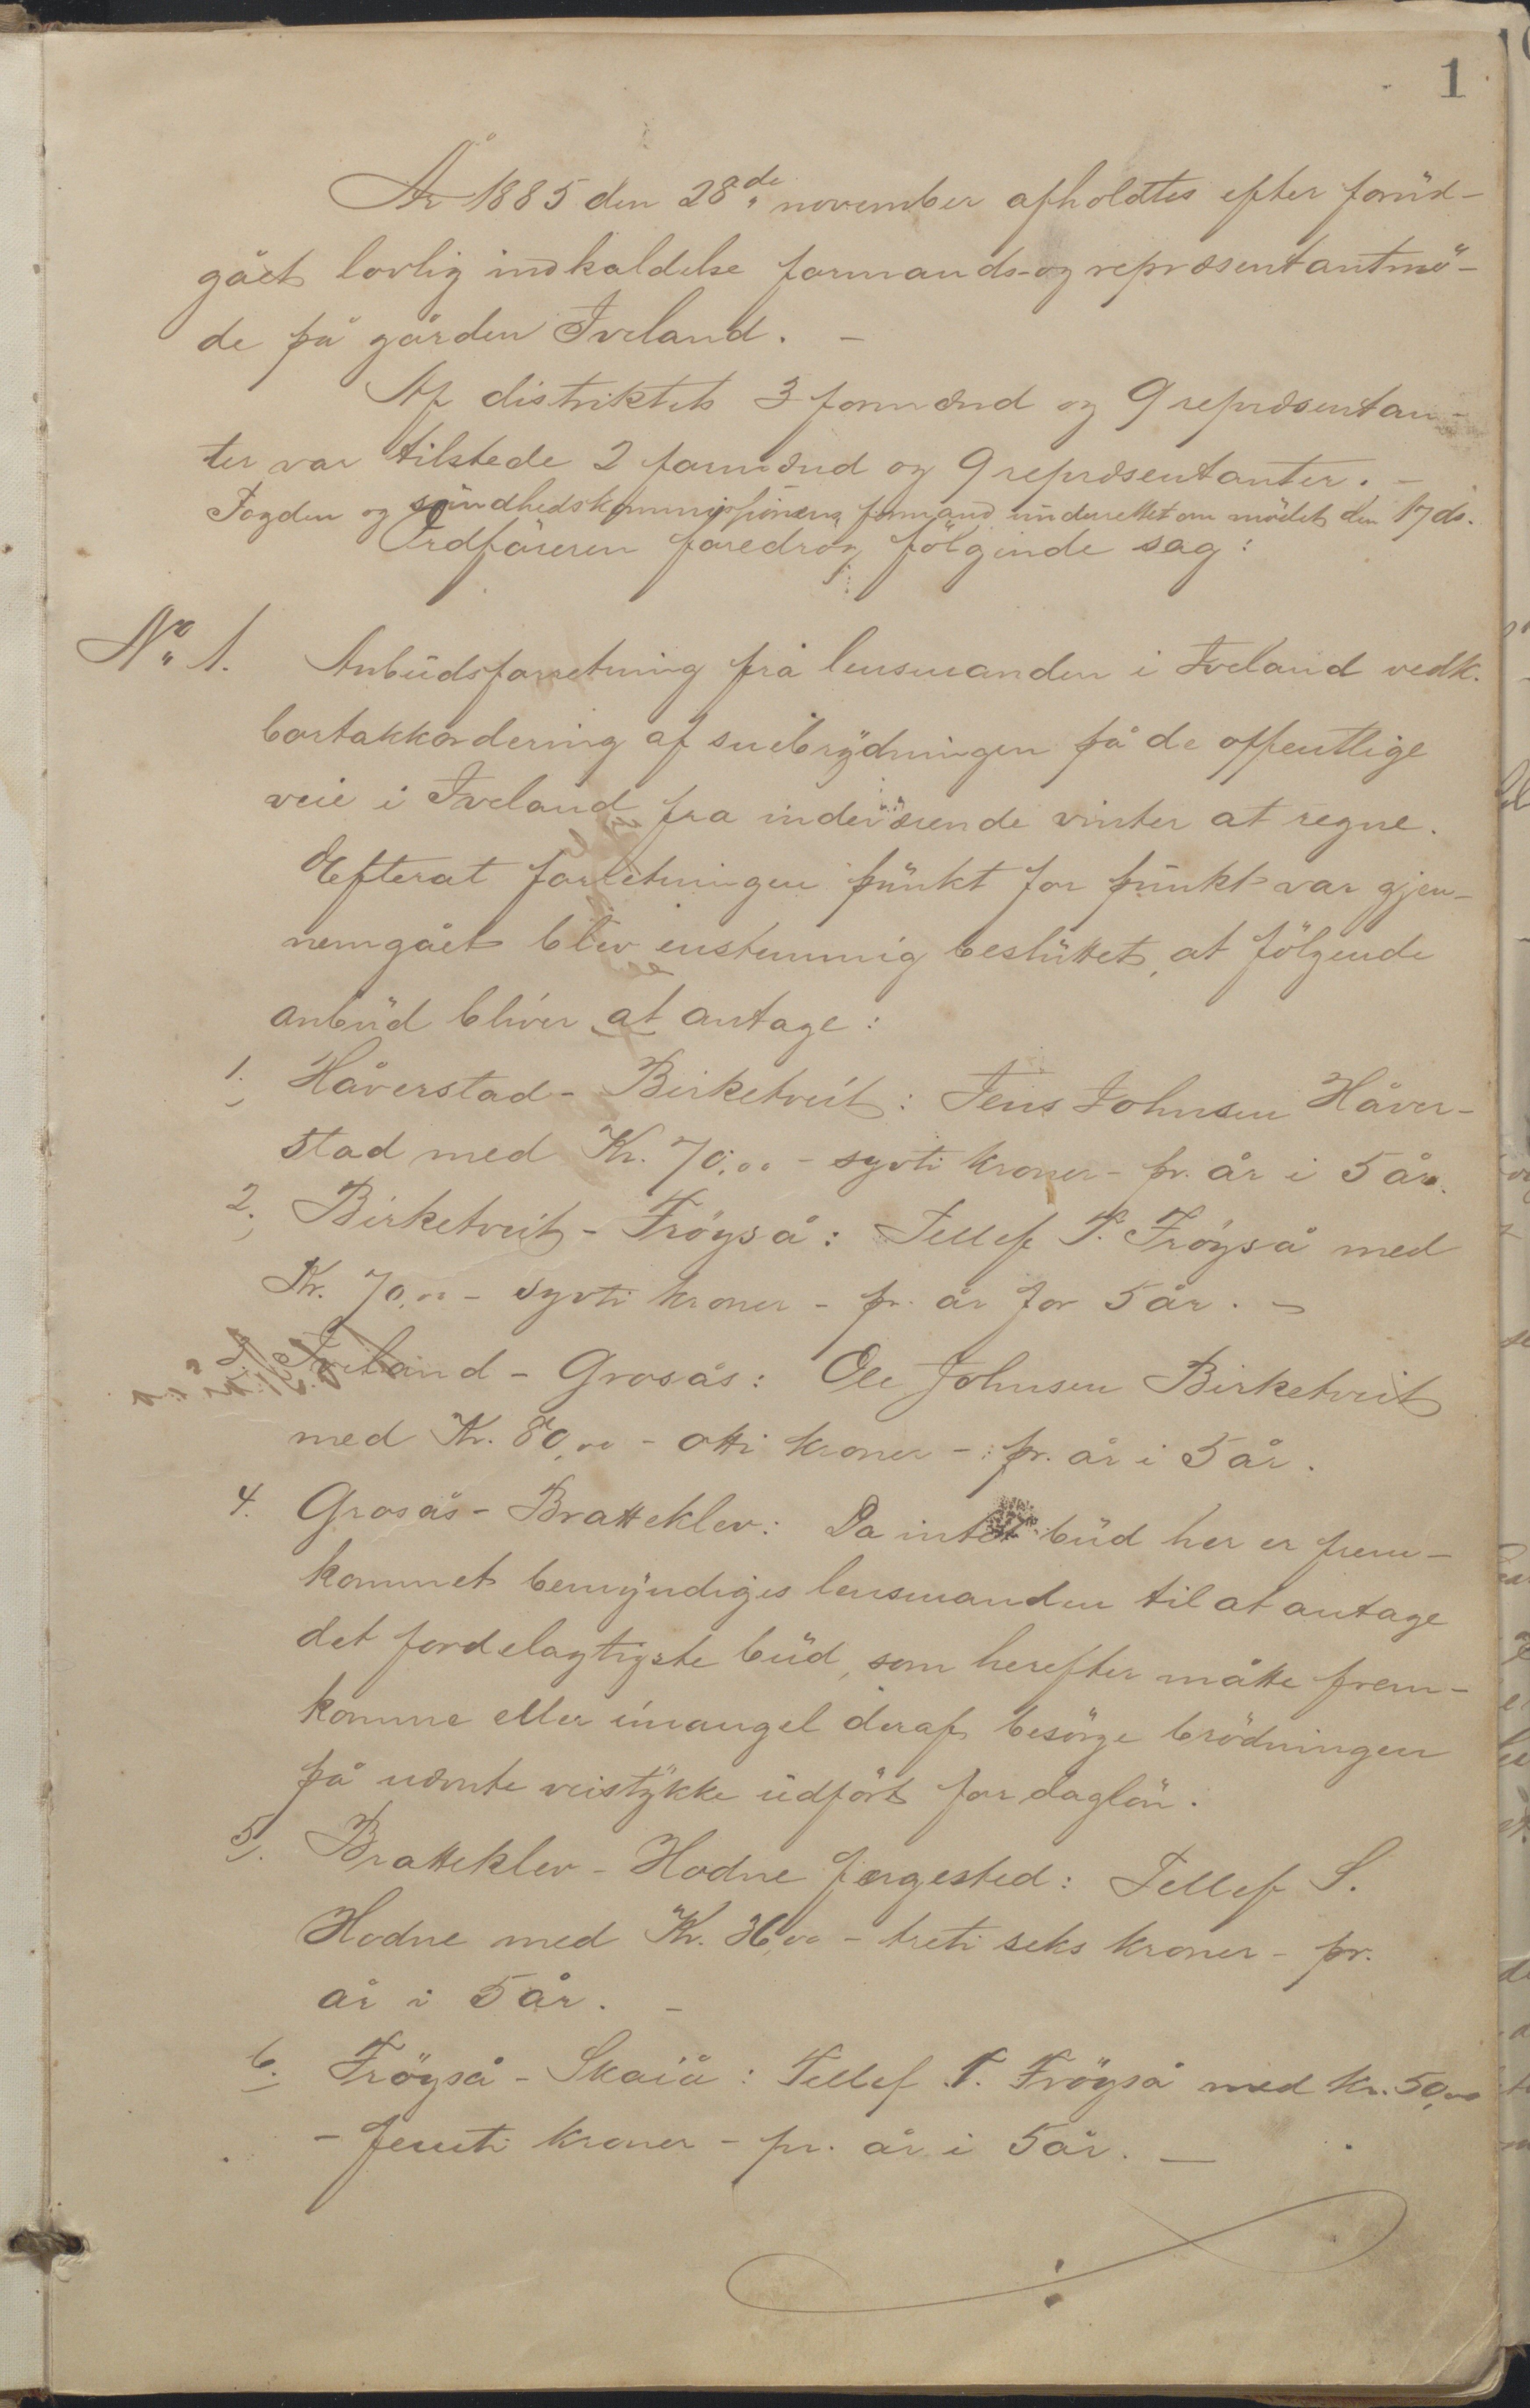 1
År 1885 den 28de november afholdtes efter forud-
gået lovlig indkaldelse formands- og repræsentantmö-
de på gården Iveland. -
Af distriktets 3 formænd og 9 repræsentan-
ter var tilstede 2 formænd og 9 repræsentanter. -
Fogden og sundhedskommissionens formand underettet om mödet den 17 ds.
Ordföreren foredrog fölgende sag:
No 1. Anbudsforretning frå lensmanden i Iveland vedk.
bortakkordering af snebrydningen på de offentlige
veie i Iveland fra indeværende vinter at regne.
Efterat forretningen punkt for punkt var gjen-
nemgået blev enstemmig besluttet, at fölgende
anbud bliver at antage:
1. Håverstad - Birketveit: Jens Johnsen Håver-
stad med Kr. 70,00 - sytti kroner - pr. år i 5 år.
2. Birketveit - Fröyså: Tellef T. Fröyså med
Kr. 70,00 - sytti kroner - pr. år for 5 år. -
Iveland - Grosås: Ole Johnsen Birketveit
med Kr. 80,00 - otti kroner - pr. år i 5 år.
4. Grosås - Bratteklev: Da intet bud her er frem-
kommet bemyndiges lensmanden til at antage
det fordelagtigste bud, som herefter måtte frem-
komme eller i mangel deraf besörge brödningen
på nævnte veistykke udfört for daglön.
5. Bratteklev - Hodne færgested: Tellef S.
Hodne med Kr. 36,00 - treti seks kroner - pr.
år i 5 år. -
6. Fröyså - Skaiå: Tellef T. Fröyså med kr. 50,00
- femti kroner - pr. år i 5 år. -